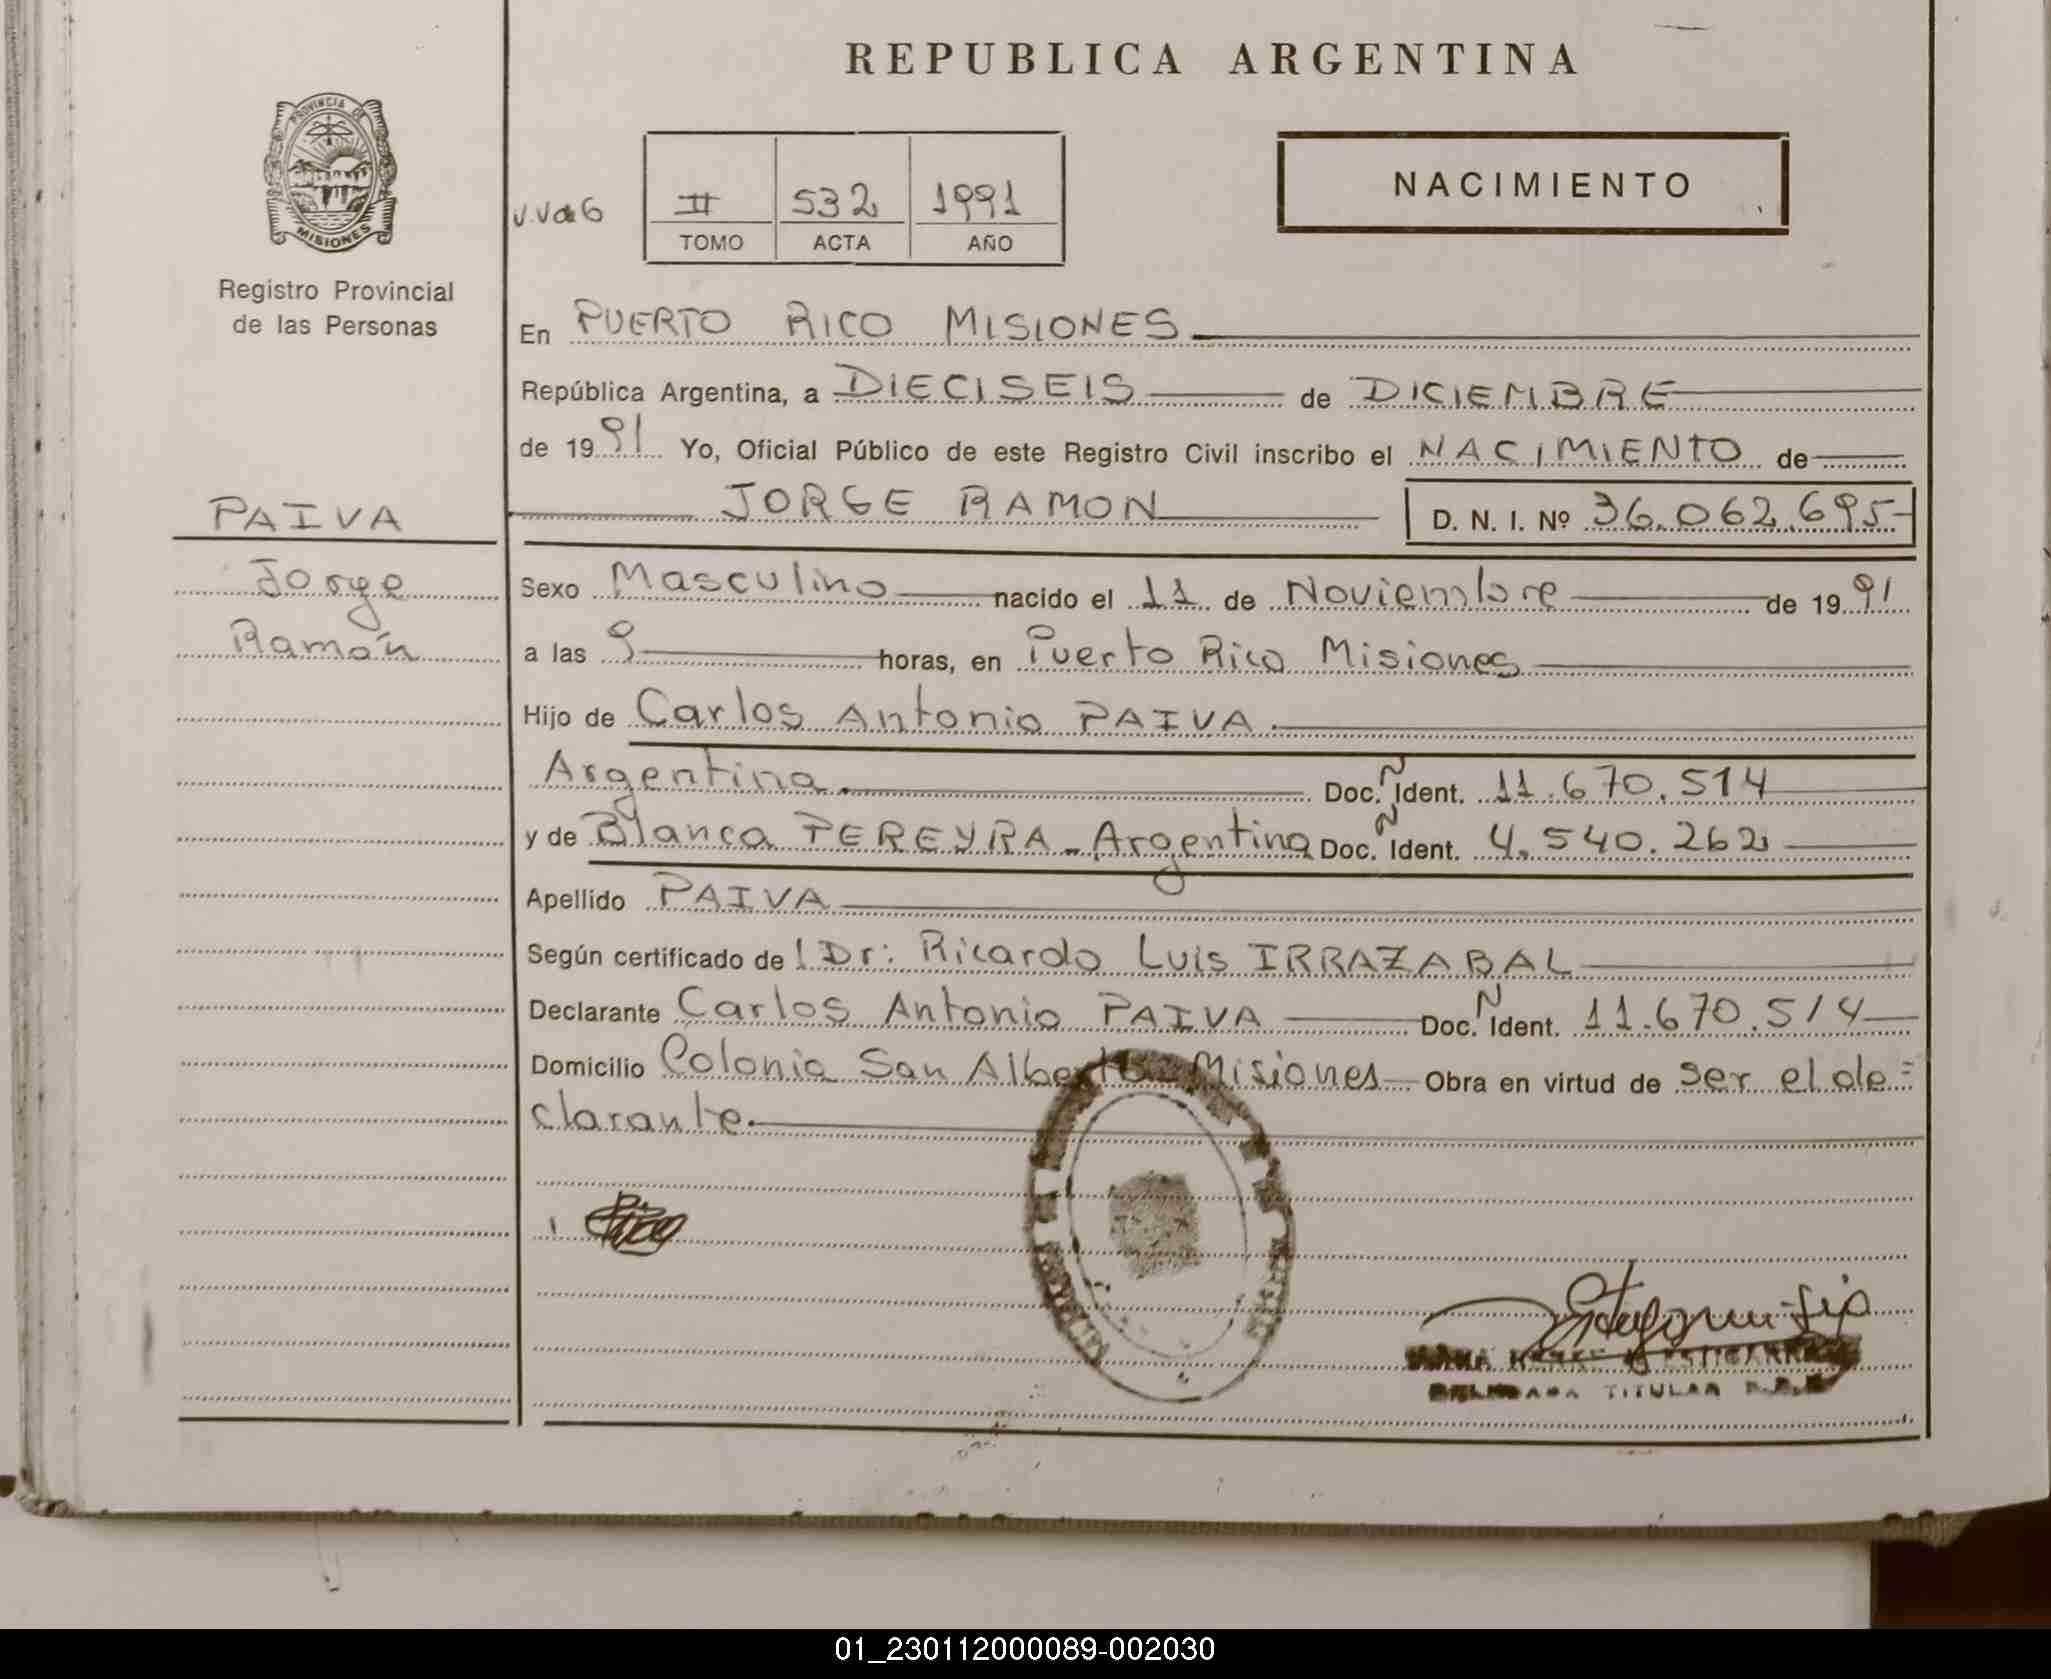 REPUBLICA ARGENTINA
PROVINCIA DE
MISIONES
Registro Provincial
de las Personas
V.Vd6
II 532 1991
TOMO ACTA AÑO
NACIMIENTO
En PUERTO RICO MISIONES
República Argentina, a DIECISEIS de DICIEMBRE
de 1991 Yo, Oficial Público de este Registro Civil inscribo el NACIMIENTO de
PAIVA
JORGE RAMON D. N. I. Nº 36.062.695
Jorge
Ramón
Sexo Masculino nacido el 11 de Noviembre de 1991
a las 9 horas, en Puerto Rico Misiones
Hijo de Carlos Antonio PAIVA.
Argentina. Doc. Ñ Ident. 11.670.514
y de Blanca PEREYRA - Argentina Doc. Ñ Ident. 4.540.262
Apellido PAIVA
Según certificado de l Dr: Ricardo Luis IRRAZABAL
Declarante Carlos Antonio PAIVA Doc. Ñ Ident. 11.670.514
Domicilio Colonia San Alberto - Misiones Obra en virtud de ser el de=
clarante.
TITULAR
01_230112000089-002030